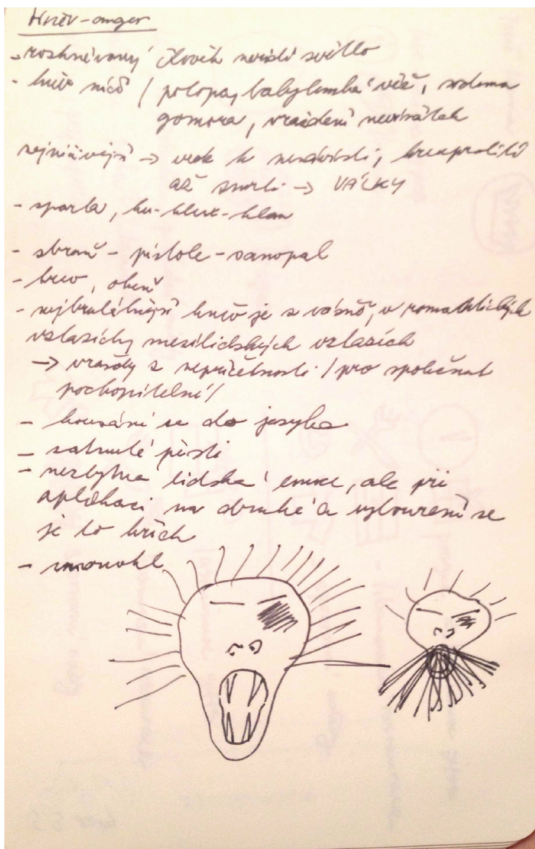 Hněv-anger
- rozhněvaný člověk nevidí světlo
- hněv ničí / potopa, babylonská věž, sodoma
gomora, vraždění neviňátek
nejničivější → vede k nenávisti, krveprolití
až smrti → VÁLKY
- sparta, ku-klux-klan
- zbraně - pistole - samopal
- krev, oheň
- nejbrutálnější hněv je z vášně, v romantických
vztazích mezilidských vztazích
→ vraždy z nepříčetnosti / pro společnost
pochopitelné /
- kousání se do jazyka
- zatnuté pěsti
- nezbytná lidská emoce, ale při
aplikaci na druhé a vybouření se
je to hřích